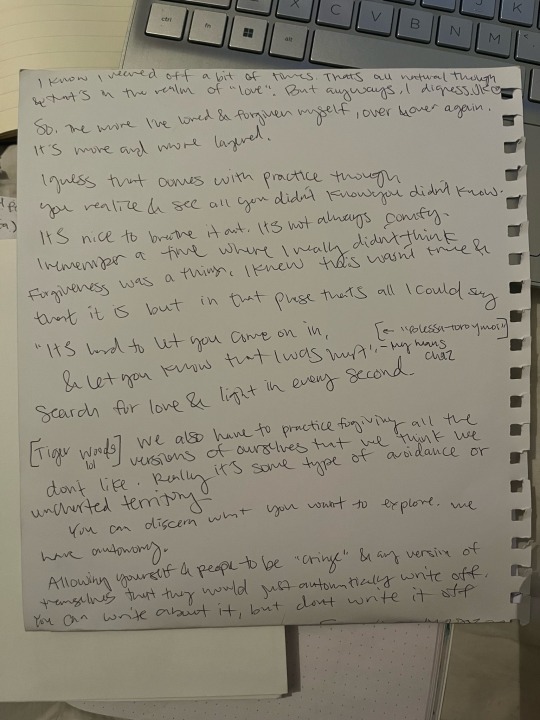 I know I veered off a bit of times. That's all natural though
that's in the realm of "love". But anyways, I digress,
So. The more I've loved & forgiven myself, over & over again.
It's more and more layered.
I guess that comes with practice though
you realize & see all you didn't know you didn't know.
It's nice to breathe it out. It's not always comfy.
I remember a time where I really didn't think
Forgiveness was a thing. I knew this wasn't true &
that it is but in that phase thats all I could say
"It's hard to let you come on in,
& let you know that I was hurt",
[←
- my mans
chaz
Search for love & light in every second
[Tiger Woods]
lol
we also have to practice forgiving all the
versions of ourselves that we think we
dont like. Really it's some type of avoidance or
uncharted territory
You can discern what you want to explore. we
have autonomy.
Allowing yourself & people to be "cringe" & any version of
themselves that they would just automatically write off.
You can write about it, but dont write it off
ctrl
fn
alt
X
C
V
B
N
M
J
K